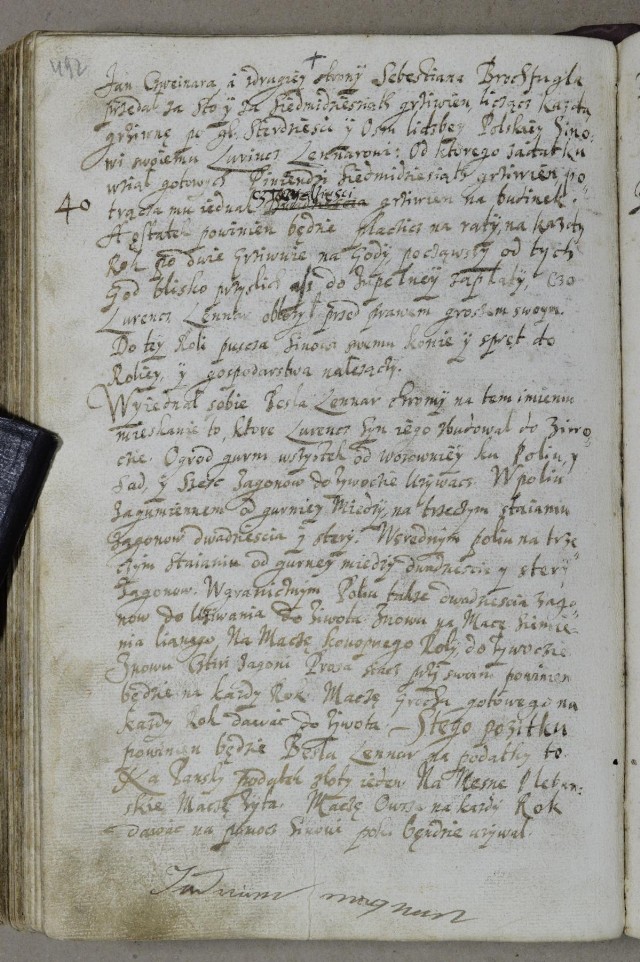 492
+
Jan Gweinara, a zdrugiey strony Sebestiana Brochfugla
przedał za sto y za siedmidziesiąt grziwien, licząc każdą
grziwnę po gr. sterdziesci y osm liczbey Polskiey Sino-
wi swoiemu Lurincz Lennarowi: Od ktorego zadatku
wział gotowych Pieniędzy siedmidziesiąt grziwien, po
40
trąca mu iednak czterdziesci grziwien na budinek.
A ostatek powinien będzie płacic na raty, na każdy
Rok po dwie Grziwnie na Gody począwszy od tych
God blisko przyslich asz do zupełney zapłaty, Czo
Lurencz Lennar obłożył przed prawem groszem swoym.
Do tey Roli puscza Sinowi swemu konie y sprzęt do
Roliey, y gospodarstwa należący.
Wyiednał sobie Besla Lennar chromy na tem imieniu
mieskanie to, ktore Lurencz Syn iego zbudował do Ziwo-
cie. Ogrod gurni wszystek od wozowniey ku Poliu, y
Sad, y szesc Zagonow do zywocie Uzywac. W poliu
Zagumiennem od gurniey Miedzy, na trzeczym staianiu
Zagonow dwadziescia y stery. Wsrednym poliu na trze-
czym staianiu od gurney miedzy dwadziescie y stery
Zagonow. Wgranicznym Poliu także dwadziescia zago-
now do Uziwania do Ziwota. Znowu na Macę Siemie-
nia lianego Na Maczę konopnego Roly, do Zywocie
Znowu Cztiri Zagoni Prosa siac przy swoim powinien
będzie na każdy Rok Maczę grochu gotowego na
każdy Rok dawac do Zywota. Stego pozitku
powinien będzie Besla Lennar na podatky to
Na Panski podatek złoty ieden Na Mesne Pleban-
skie Maczę Zyta. Maczę Owsa na każdi Rok
dawac na pomoc Sinowi poki będzie uzywał.